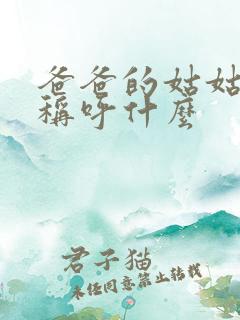 爸爸的姑姑
稱呼什麼
君子猫
未任同意禁止转载